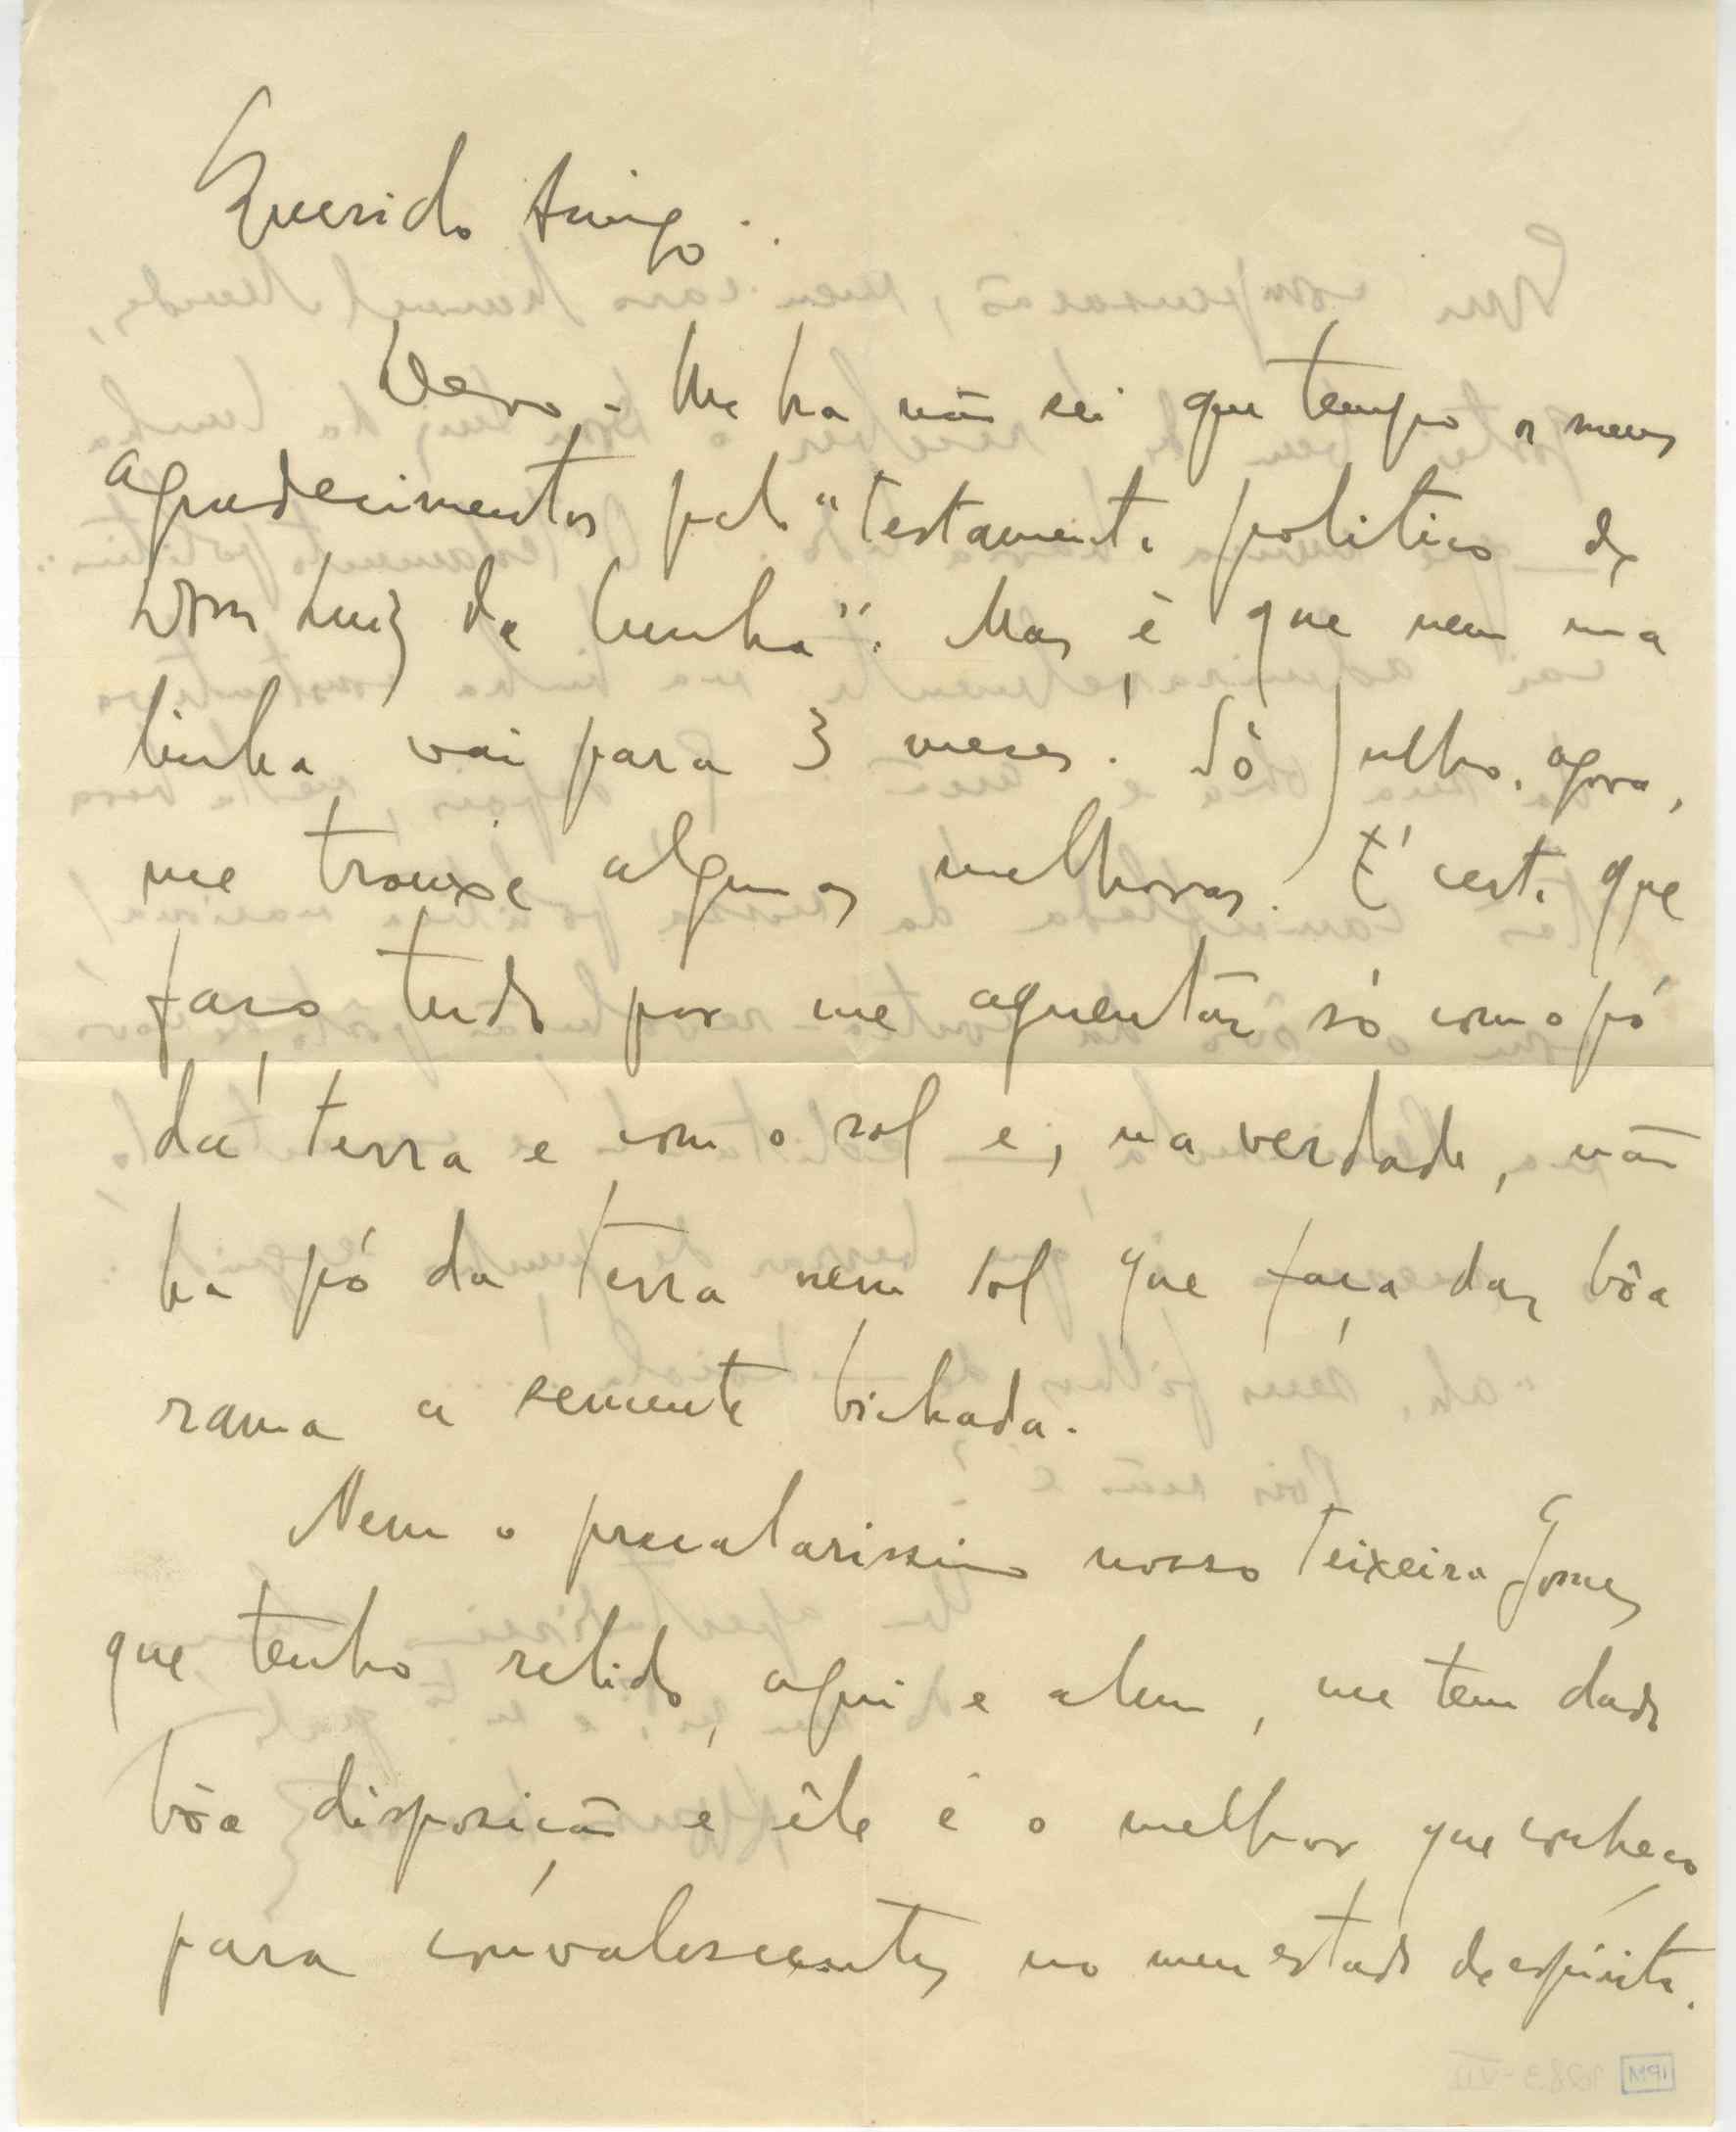 Querido Amigo:
Devo-lhe ha não sei que tempo os meus
agradecimentos pelo "Testamento politico de
Dom Luiz da Cunha". Mas é que nem uma
linha vai para 3 meses! Só Julho, agora,
me trouxe algumas melhoras. É certo que
faço tudo por me aguentar só com o pó
da terra e com o sol e, na verdade, não
ha pó da terra nem sol que faça dar bôa
rama a semente bichada.
Nem o preclarissimo nosso Teixeira Gomes
que tenho relido, aqui e alem, me tem dado
bôa disposição e êle é o melhor que conheço
para convalescentes no meu estado de espirito.
IPM